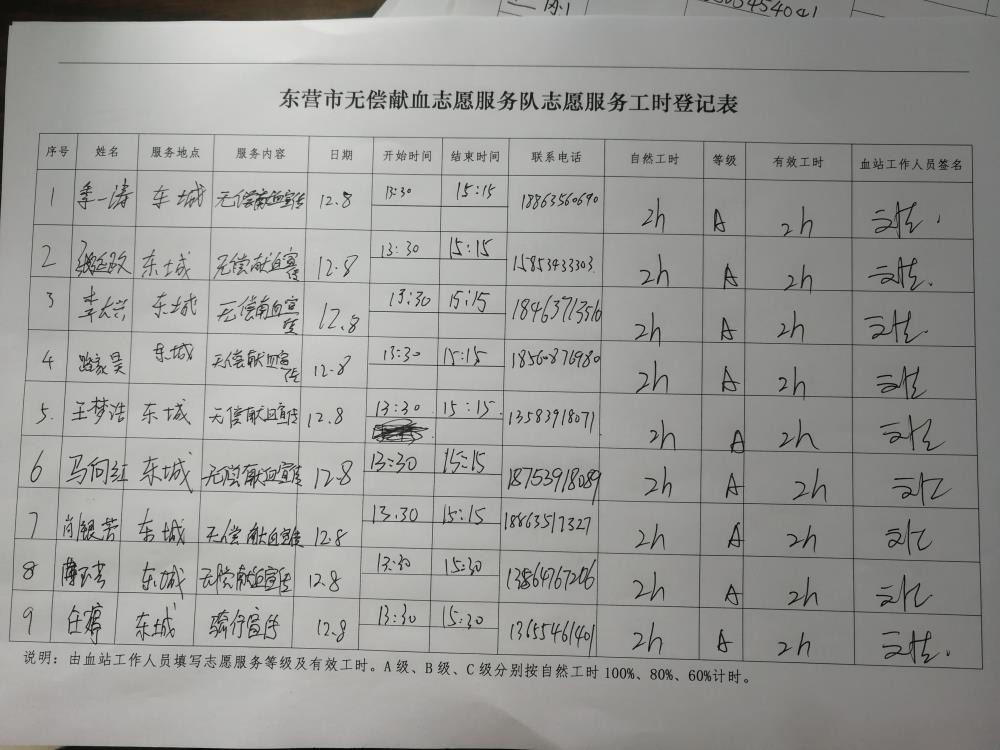 东营市无偿献血志愿服务队志愿服务工时登记表
序号 姓名 服务地点 服务内容 日期 开始时间 结束时间 联系电话 自然工时 等级 有效工时 血站工作人员签名
1 季一涛 东城 无偿献血宣传 12.8 13:30 15:15 18863560690 2h A 2h
2 东城 无偿献血宣传 12.8 13:30 15:15 15853433303 2h A 2h
3 李大兴 东城 无偿献血宣传 12.8 13:30 15:15 18463713516 2h A 2h
4 路家昊 东城 无偿献血宣传 12.8 13:30 15:15 18560876980 2h A 2h
5. 王梦浩 东城 无偿献血宣传 12.8 13:30 15:15 13583918071 2h A 2h
6 马向红 东城 无偿献血宣传 12.8 13:30 15:15 18753918089 2h A 2h
7 肖银芳 东城 无偿献血宣传 12.8 13.30 15:15 18863517327 2h A 2h
8 东城 无偿献血宣传 12.8 13:30 15:30 13864767206 2h A 2h
9 任婷 东城 骑行宣传 12.8 13:30 15:30 13655461401 2h A 2h
说明：由血站工作人员填写志愿服务等级及有效工时。A 级、B 级、C 级分别按自然工时 100%、80%、60%计时。